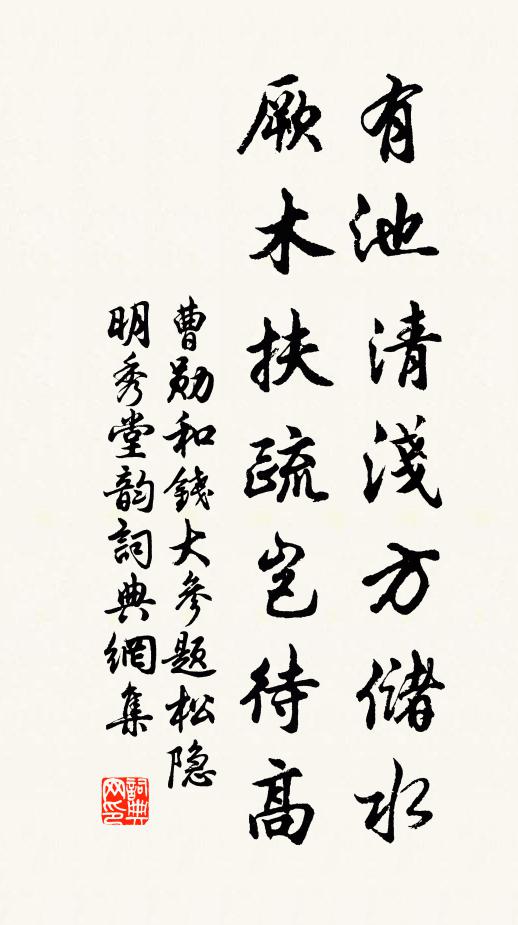 有池清淺方儲水
厥木扶疏豈待高
曹勛和錢大參題松隐
明秀堂韵詞典網集
詞典
网印